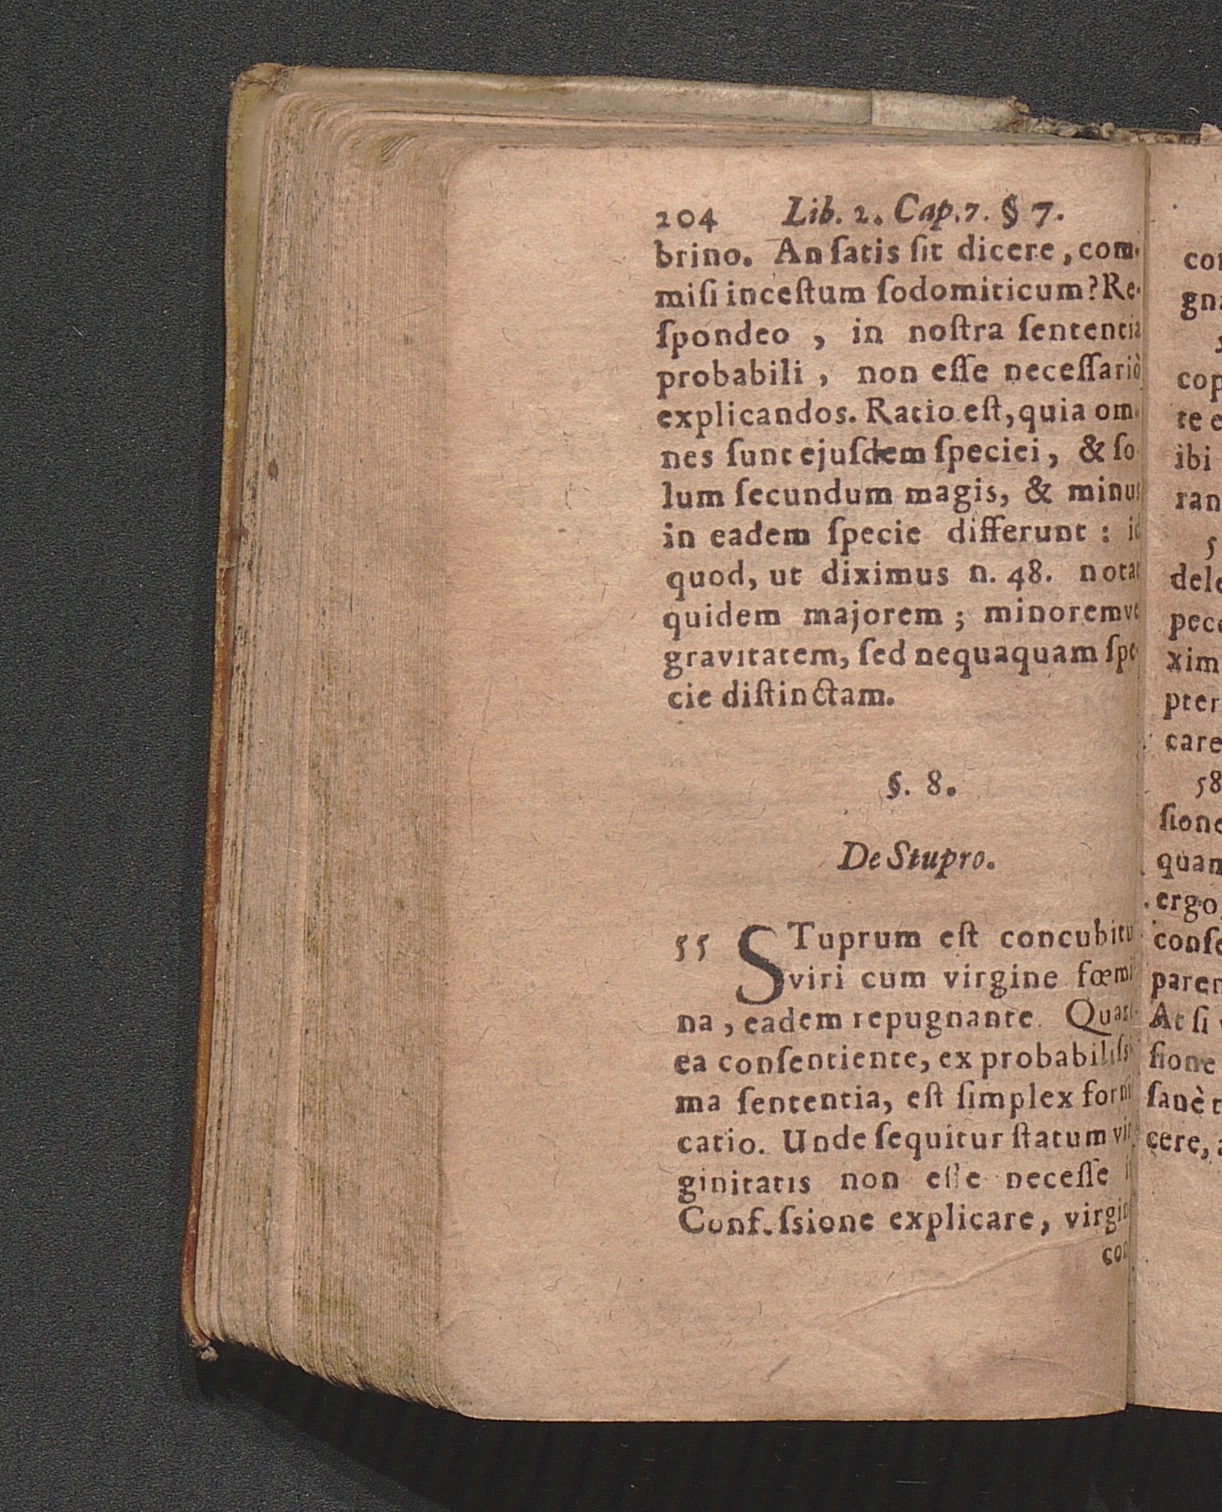 204 Lib. 2. Cap. 7. § 7.
brino. An ſatis ſit dicere, com-
miſi inceſtum ſodomiticum? Re-
ſpondeo , in noſtra ſententia
probabili , non eſſe neceſſariò
explicandos. Ratio eſt, quia om-
nes ſunt ejuſdem ſpeciei, & ſo
lum ſecundum magis, & minus
in eadem ſpecie differunt : id
quod, ut diximus n. 48. notat
quidem majorem ; minoremve
gravitatem, ſed nequaquam ſpe
cie diſtinctam.
§. 8.
De Stupro.
55 STuprum eſt concubitu
viri cum virgine fœmi
na , eadem repugnante. Quare
ea conſentiente, ex probabiliſsi
ma ſententia, eſt ſimplex forni
catio. Unde ſequitur ſtatum vir
ginitatis non eſſe neceſſe
Conf.ſsione explicare, virgin
con
cor
gna
cop
te e
ibi
ran
5
dele
pecc
xim
pter
care
58
ſione
quan
ergo
conſe
paren
At ſi
ſione
ſanè
cere,